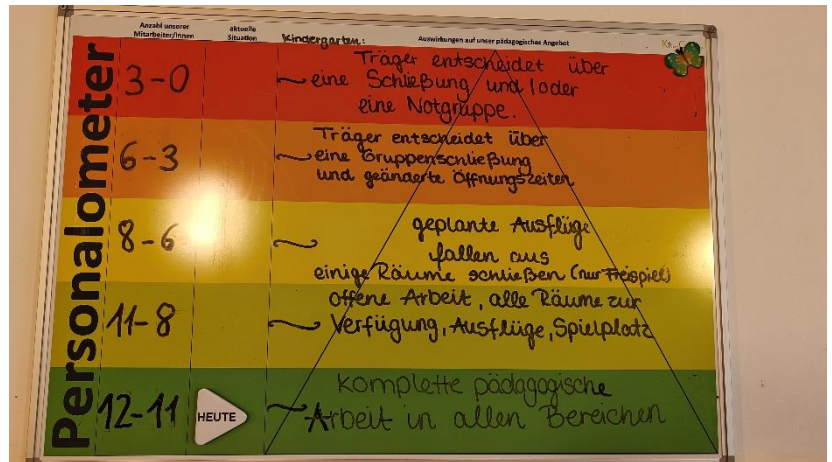 Anzahl unserer
Mitarbeiter/Innen
aktuelle
Situation
Kindergarten:
Auswirkungen auf unser pädagogisches Angebot
Personalometer
3-0
Träger entscheidet über
eine Schließung und/oder
eine Notgruppe.
6-3
Träger entscheidet über
eine Gruppenschließung
und geänderte Öffnungszeiten
8-6
geplante Ausflüge
fallen aus
einige Räume schließen (nur Freispiel)
11-8
offene Arbeit, alle Räume zur
Verfügung, Ausflüge, Spielplatz
12-11
HEUTE
komplette pädagogische
Arbeit in allen Bereichen